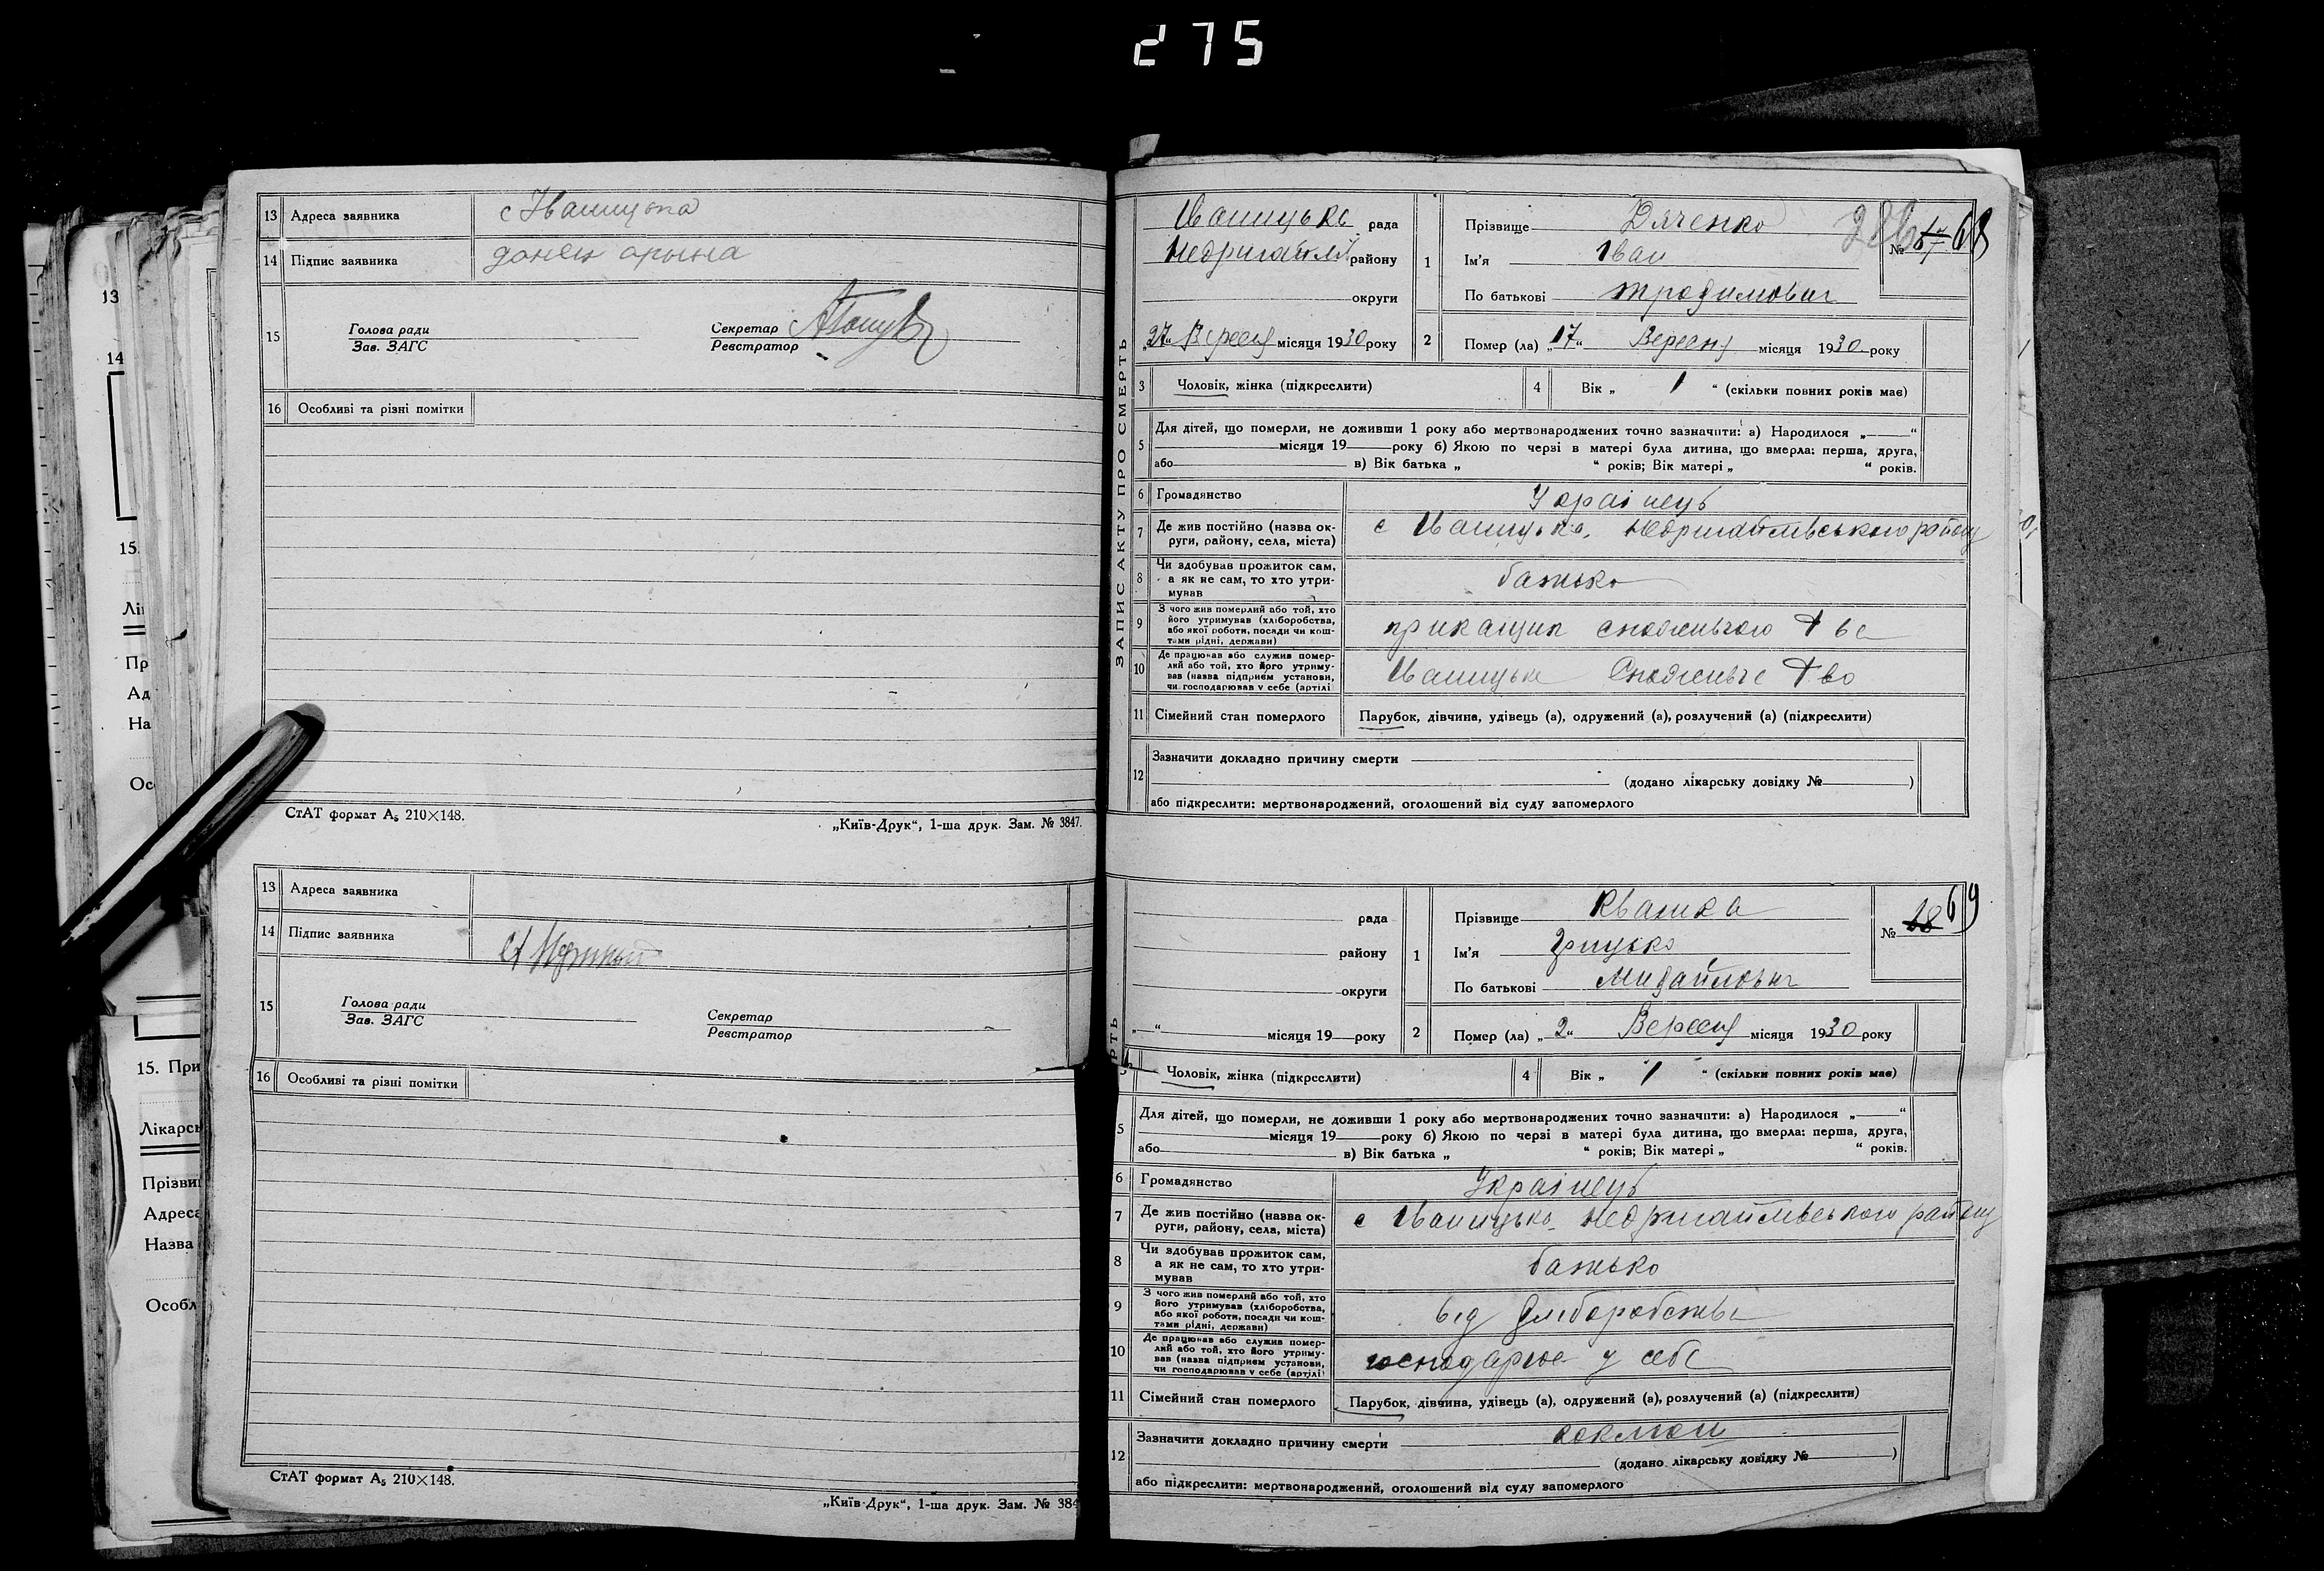 275
13 Адреса заявника с Іваницька
14 Підпис заявника
15 Голова ради Секретар
Зав. ЗАГС Реєстратор
16 Особливі та різні помітки
СтАТ формат А₅ 210×148.
„Київ-Друк“, 1-ша друк. Зам. № 3847.
13 Адреса заявника
14 Підпис заявника
15 Голова ради Секретар
Зав. ЗАГС Реєстратор
16 Особливі та різні помітки
СтАТ формат А₅ 210×148.
„Київ-Друк“, 1-ша друк. Зам. № 384
ЗАПИС АКТУ ПРО СМЕРТЬ
Іваницька рада
району
округи
„27“ Вересня місяця 1930 року
1 Прізвище Дяченко
№ 68
Ім'я Іван
По батькові Трохимович
2 Помер (ла) „17“ Вересня місяця 1930 року
3 Чоловік, жінка (підкреслити) 4 Вік „ 1 “ (скільки повних років має)
5 Для дітей, що померли, не доживши 1 року або мертвонароджених точно зазначити: а) Народилося „ “
місяця 19 року б) Якою по черзі в матері була дитина, що вмерла: перша, друга,
або в) Вік батька „ “ років; Вік матері „ “ років.
6 Громадянство Українець
7 Де жив постійно (назва ок-
руги, району, села, міста) с Іваницька, Недригайлівського району
8 Чи здобував прожиток сам,
а як не сам, то хто утри-
мував батько
9 З чого жив померлий або той, хто
його утримував (хліборобства,
або якої роботи, посади чи кош-
тами рідні, держави) прикащик споживчого т ва
10 Де працював або служив помер-
лий або той, хто його утриму-
вав (назва підприєм установи,
чи господарював у себе (артілі) Іваницьке Споживче т во
11 Сімейний стан померлого Парубок, дівчина, удівець (а), одружений (а), розлучений (а) (підкреслити)
12 Зазначити докладно причину смерти
(додано лікарську довідку № )
або підкреслити: мертвонароджений, оголошений від суду запомерлого
РТЬ
рада
району
округи
„ “ місяця 19 року
1 Прізвище Квашка
№ 18 69
Ім'я Грицько
По батькові Михайлович
2 Помер (ла) „2“ Вересня місяця 1930 року
Чоловік, жінка (підкреслити) 4 Вік „ 1 “ (скільки повних років має)
5 Для дітей, що померли, не доживши 1 року або мертвонароджених точно зазначити: а) Народилося „ “
місяця 19 року б) Якою по черзі в матері була дитина, що вмерла: перша, друга,
або в) Вік батька „ “ років; Вік матері „ “ років.
6 Громадянство Українець
7 Де жив постійно (назва ок-
руги, району, села, міста) с Іваницька, Недригайлівського району
8 Чи здобував прожиток сам,
а як не сам, то хто утри-
мував батько
9 З чого жив померлий або той, хто
його утримував (хліборобства,
або якої роботи, посади чи кош-
тами рідні, держави) від хліборобства
10 Де працював або служив помер-
лий або той, хто його утриму-
вав (назва підприєм установи,
чи господарював у себе (артілі) господарює у себе
11 Сімейний стан померлого Парубок, дівчина, удівець (а), одружений (а), розлучений (а) (підкреслити)
12 Зазначити докладно причину смерти коклюш
(додано лікарську довідку № )
або підкреслити: мертвонароджений, оголошений від суду запомерлого
13
14
15.
15. При
Лікарсь
Прізви
Адреса
Назва